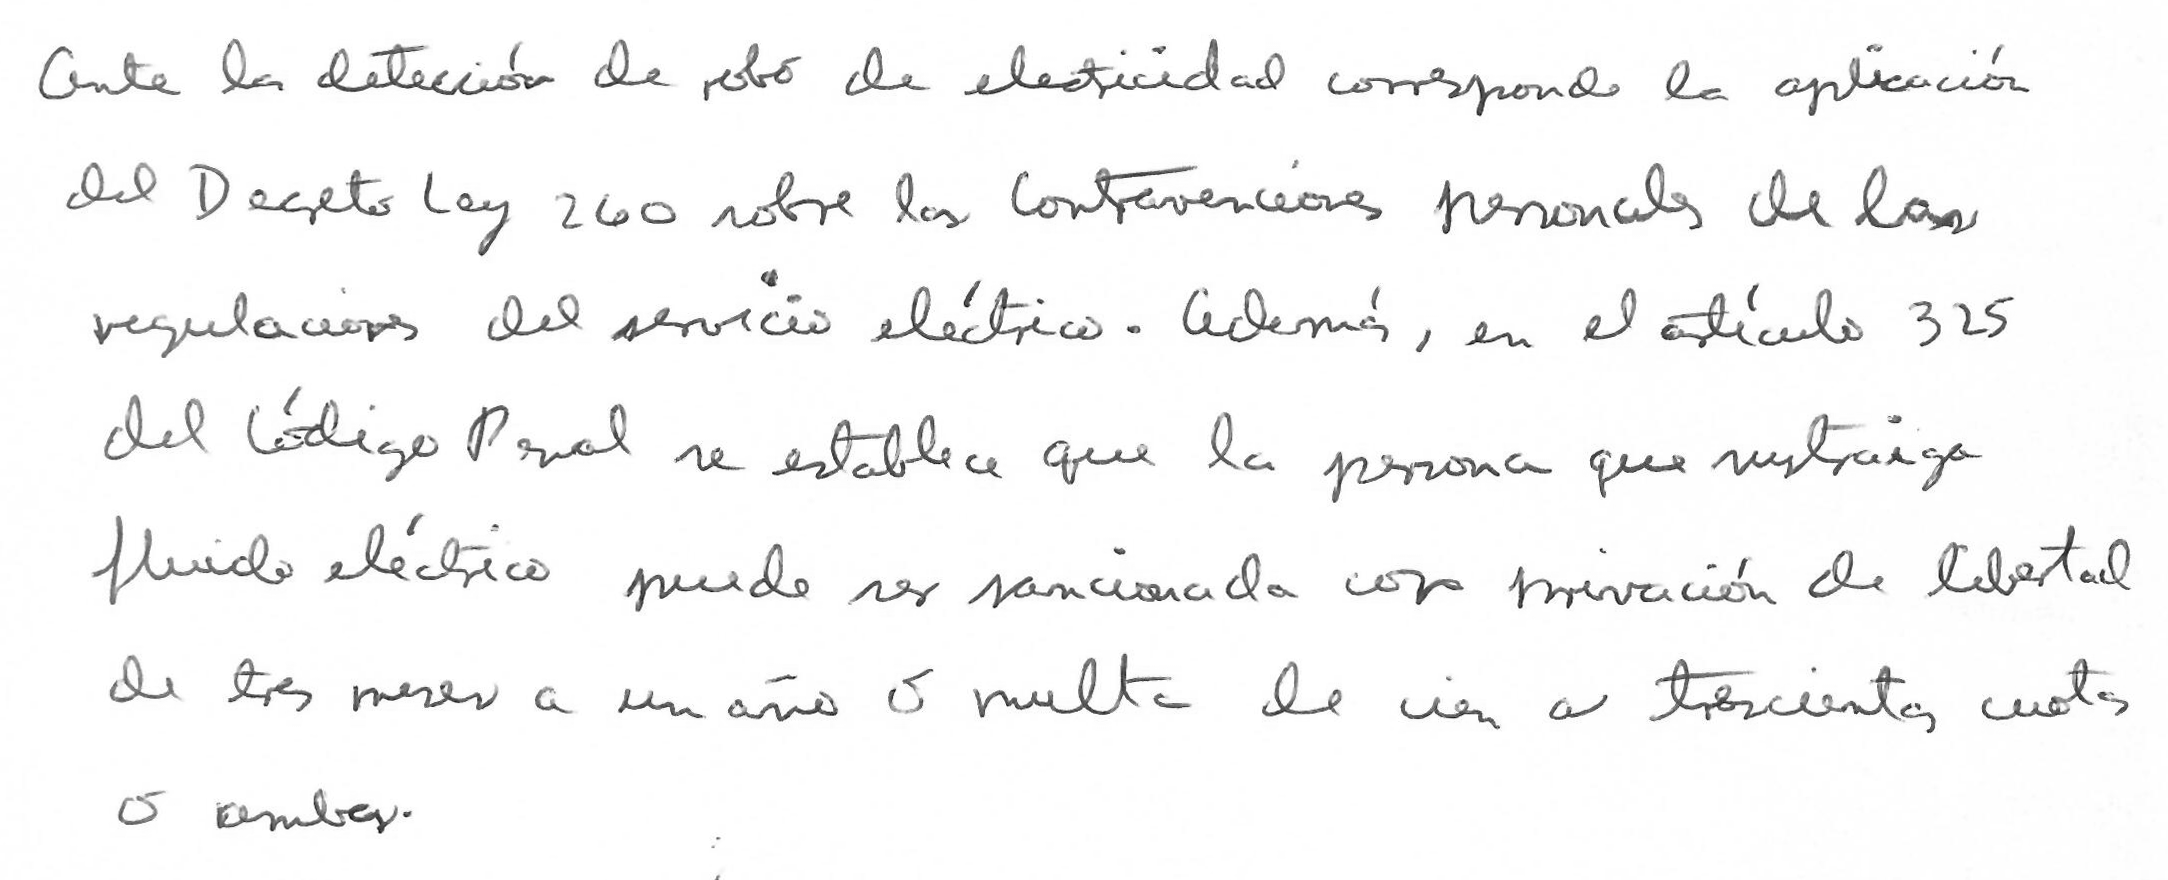 Ante la detección de robo de electricidad corresponde la aplicación
del Decreto Ley 260 sobre las Contravenciones personales de las
regulaciones del servicio eléctrico. Además, en el artículo 325
del Código Penal se establece que la persona que sustraiga
fluido eléctrico puede ser sancionada con privación de libertad
de tres meses a un año ó multa de cien a trescientas cuotas
ó ambas.